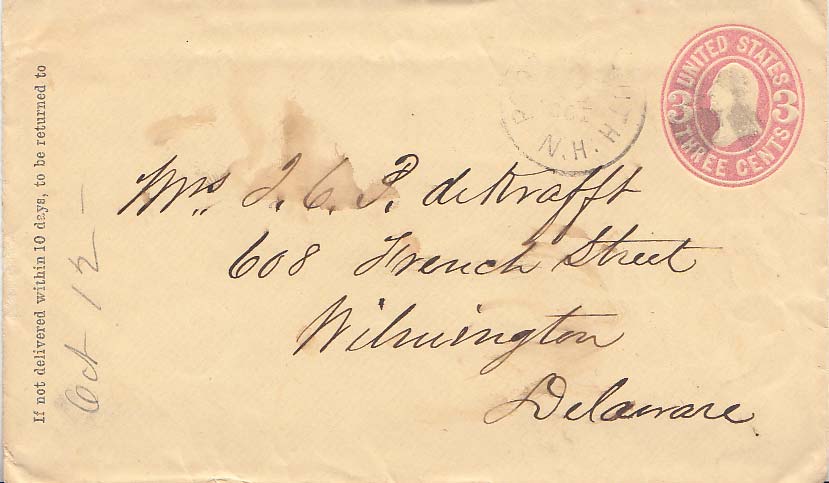 If not delivered within 10 days, to be returned to
Oct 12 —
N.H.
UNITED STATES
3 3
THREE CENTS
Mrs J. C. P. deKrafft
608 French Street
Wilmington
Delaware